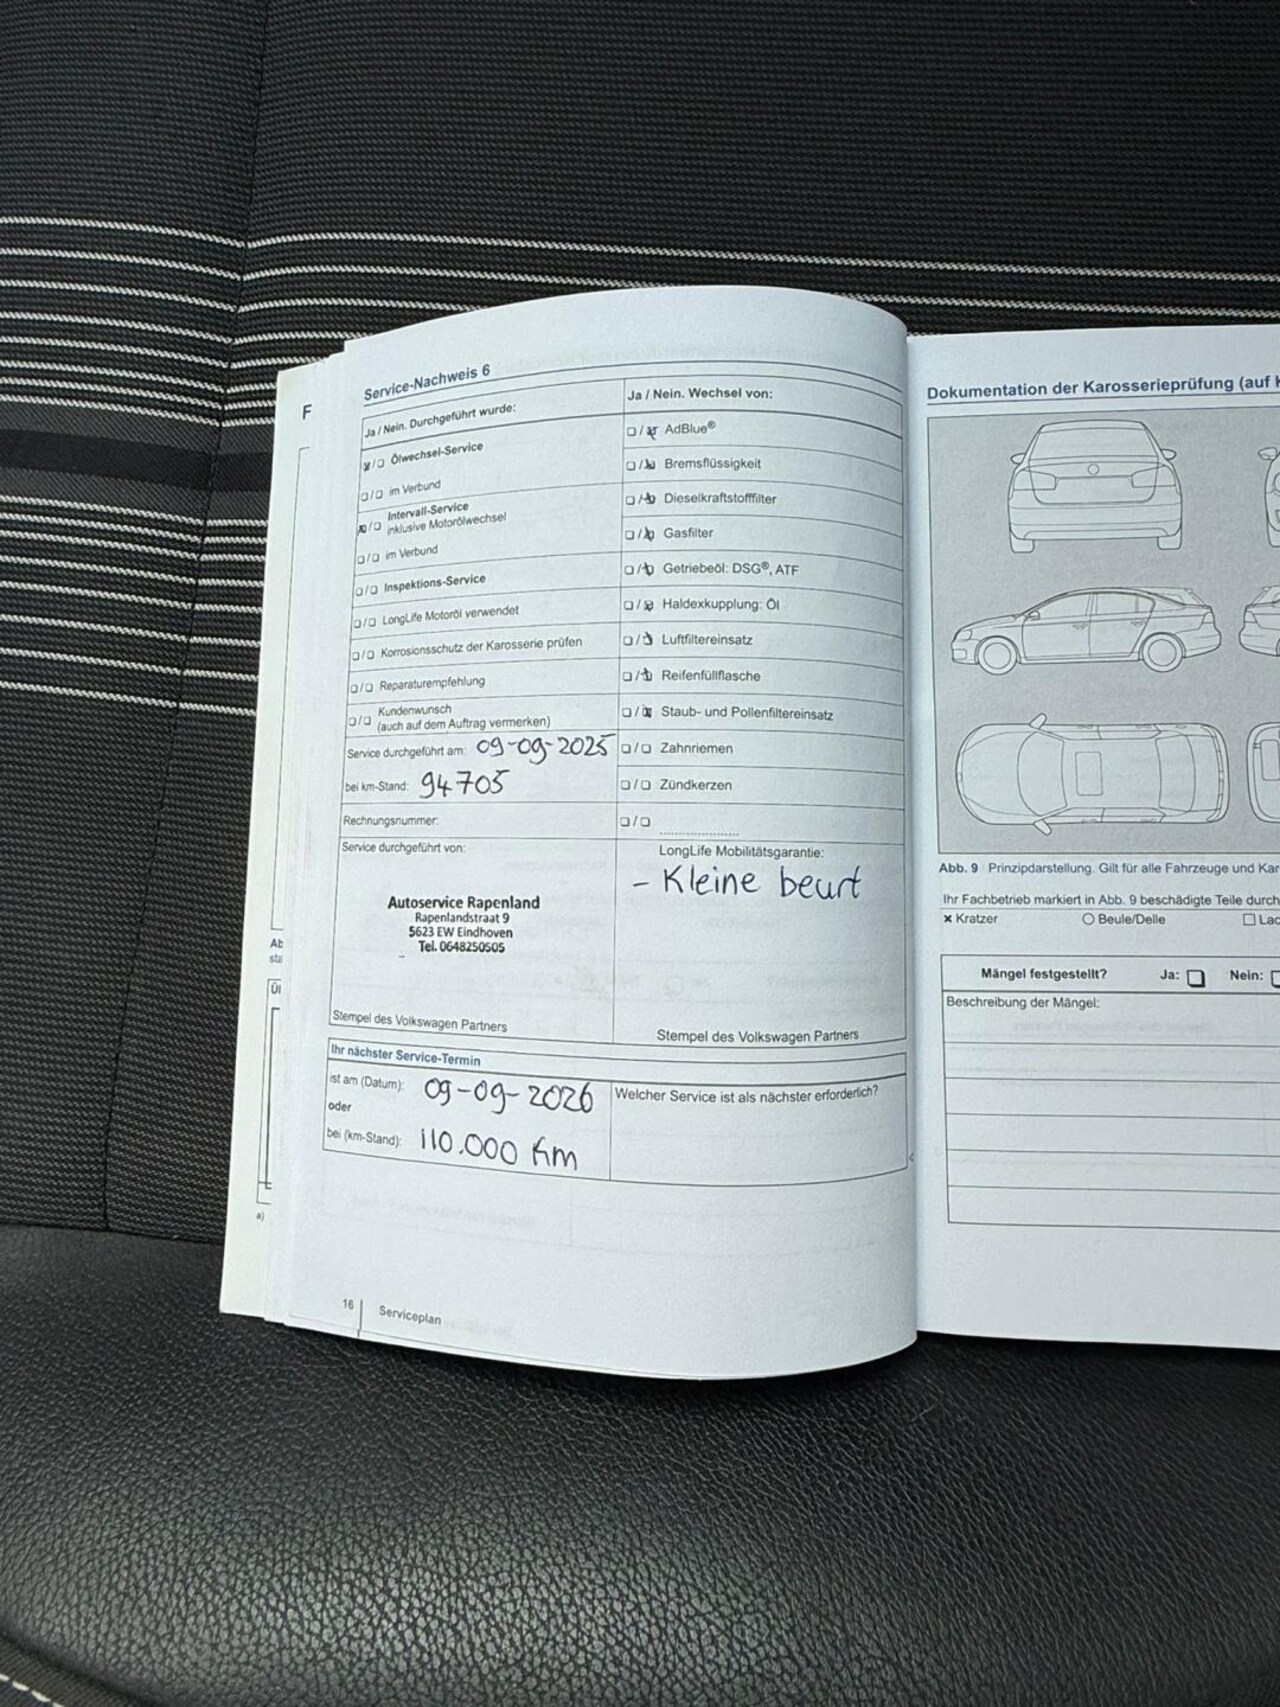 F
Service-Nachweis 6
Ja / Nein. Durchgeführt wurde:
Ölwechsel-Service
im Verbund
Intervall-Service
inklusive Motorölwechsel
im Verbund
Inspektions-Service
LongLife Motoröl verwendet
Korrosionsschutz der Karosserie prüfen
Reparaturempfehlung
Kundenwunsch
(auch auf dem Auftrag vermerken)
Service durchgeführt am: 09-09-2025
bei km-Stand: 94705
Rechnungsnummer:
Service durchgeführt von:
Autoservice Rapenland
Rapenlandstraat 9
5623 EW Eindhoven
Tel. 0648250505
Stempel des Volkswagen Partners
Ja / Nein. Wechsel von:
AdBlue®
Bremsflüssigkeit
Dieselkraftstofffilter
Gasfilter
Getriebeöl: DSG®, ATF
Haldexkupplung: Öl
Luftfiltereinsatz
Reifenfüllflasche
Staub- und Pollenfiltereinsatz
Zahnriemen
Zündkerzen
LongLife Mobilitätsgarantie:
- Kleine beurt
Stempel des Volkswagen Partners
Ihr nächster Service-Termin
ist am (Datum): 09-09-2026
oder
bei (km-Stand): 110.000 km
Welcher Service ist als nächster erforderlich?
16
Serviceplan
Ab
sta
Ül
a)
Dokumentation der Karosserieprüfung (auf
Abb. 9 Prinzipdarstellung. Gilt für alle Fahrzeuge und Kar
Ihr Fachbetrieb markiert in Abb. 9 beschädigte Teile durch
x Kratzer
Beule/Delle
Lac
Mängel festgestellt? Ja: Nein:
Beschreibung der Mängel: